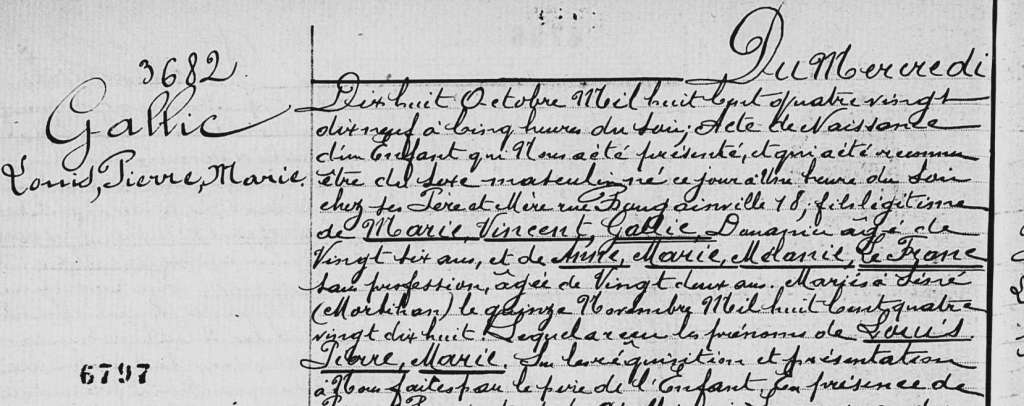 3682
Gallic
Louis, Pierre, Marie.
6797
Du Mercredi
Dix huit Octobre Mil huit Cent quatre vingt
dix neuf à Cinq heures du Soir; Acte de Naissance
d'un Enfant qui Nous a été présenté, et qui a été reconnu
être du Sexe masculin né ce jour à Une heure du Soir
chez ses Père et Mère rue Bougainville 18; fils légitime
de Marie, Vincent, Gallic, Douanier âgé de
Vingt six ans, et de Anne, Marie, Mélanie, Le Franc
sans profession, âgée de Vingt deux ans. Mariés à Séné
(Morbihan) le quinze Novembre Mil huit Cent quatre
vingt dix huit. Lequel a reçu les prénoms de Louis
Pierre, Marie. Sur la réquisition et présentation
à Nous faites par le père de l'Enfant, En présence de